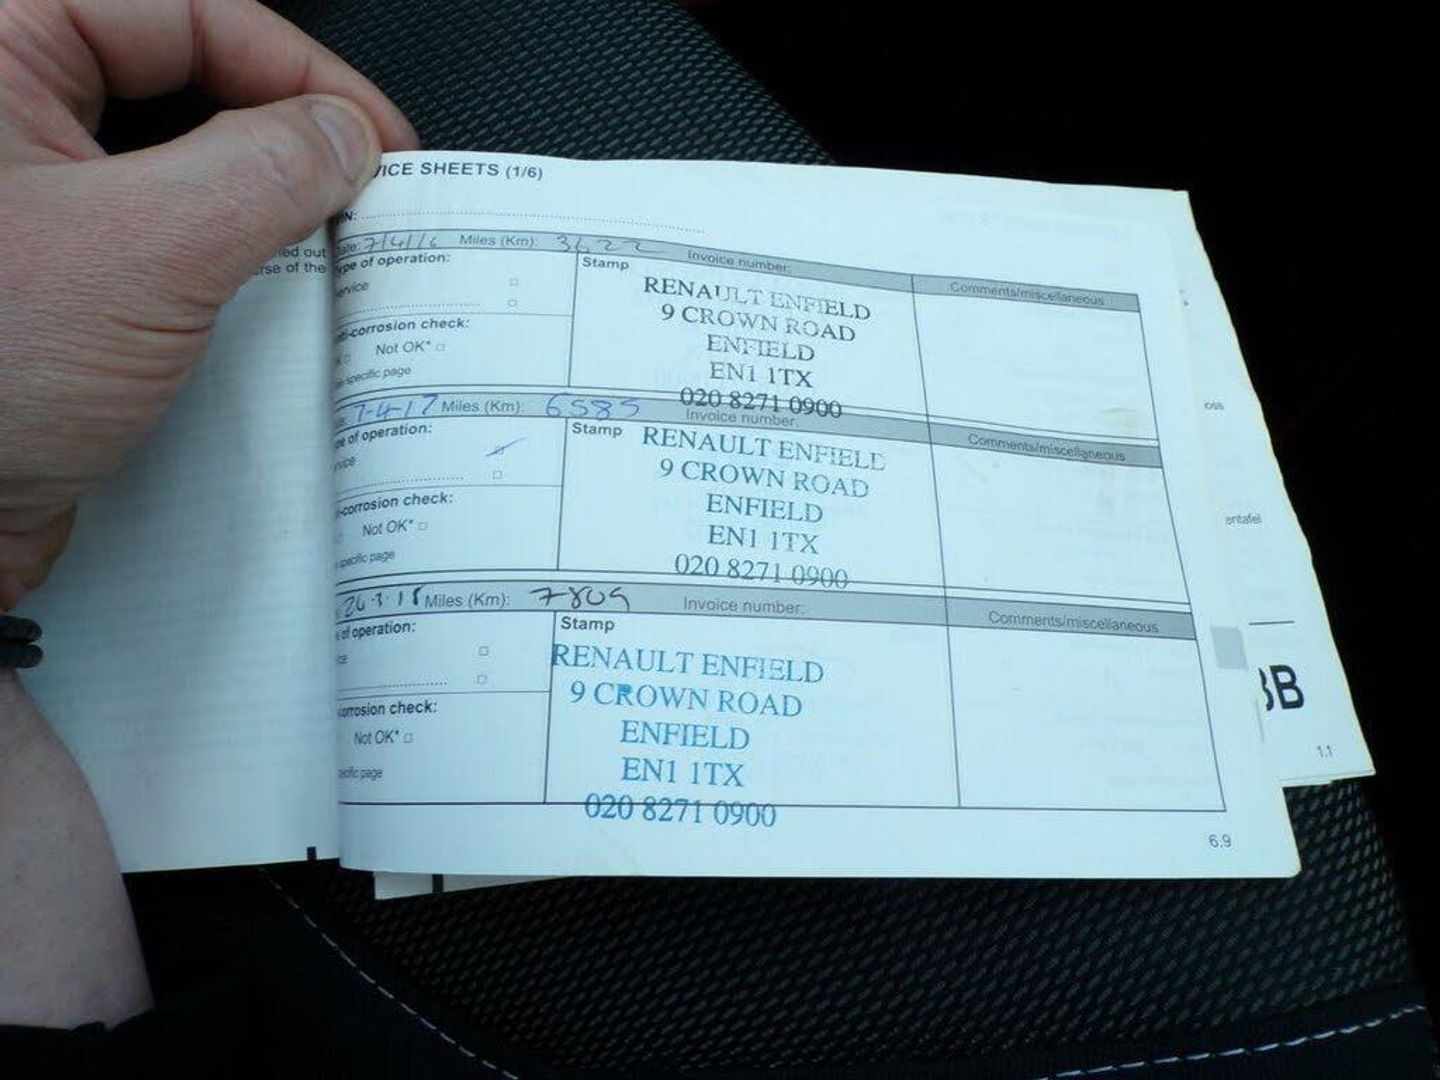 VICE SHEETS (1/6)
ned out
rse of the
IN:
ate: 7/4/16 Miles (Km): 3622 Invoice number:
ype of operation:
ervice
nti-corrosion check:
Not OK*
specific page
Stamp
RENAULT ENFIELD
9 CROWN ROAD
ENFIELD
EN1 1TX
020 8271 0900
Comments/miscellaneous
7-4-17 Miles (Km): 6585 Invoice number:
pe of operation:
Stamp
RENAULT ENFIELD
9 CROWN ROAD
ENFIELD
EN1 1TX
020 8271 0900
Comments/miscellaneous
-corrosion check:
Not OK*
specific page
26.3.18 Miles (Km): 7809 Invoice number:
e of operation:
Stamp
RENAULT ENFIELD
9 CROWN ROAD
ENFIELD
EN1 1TX
020 8271 0900
Comments/miscellaneous
corrosion check:
Not OK*
pecific page
6.9
oss
entafel
BB
1.1